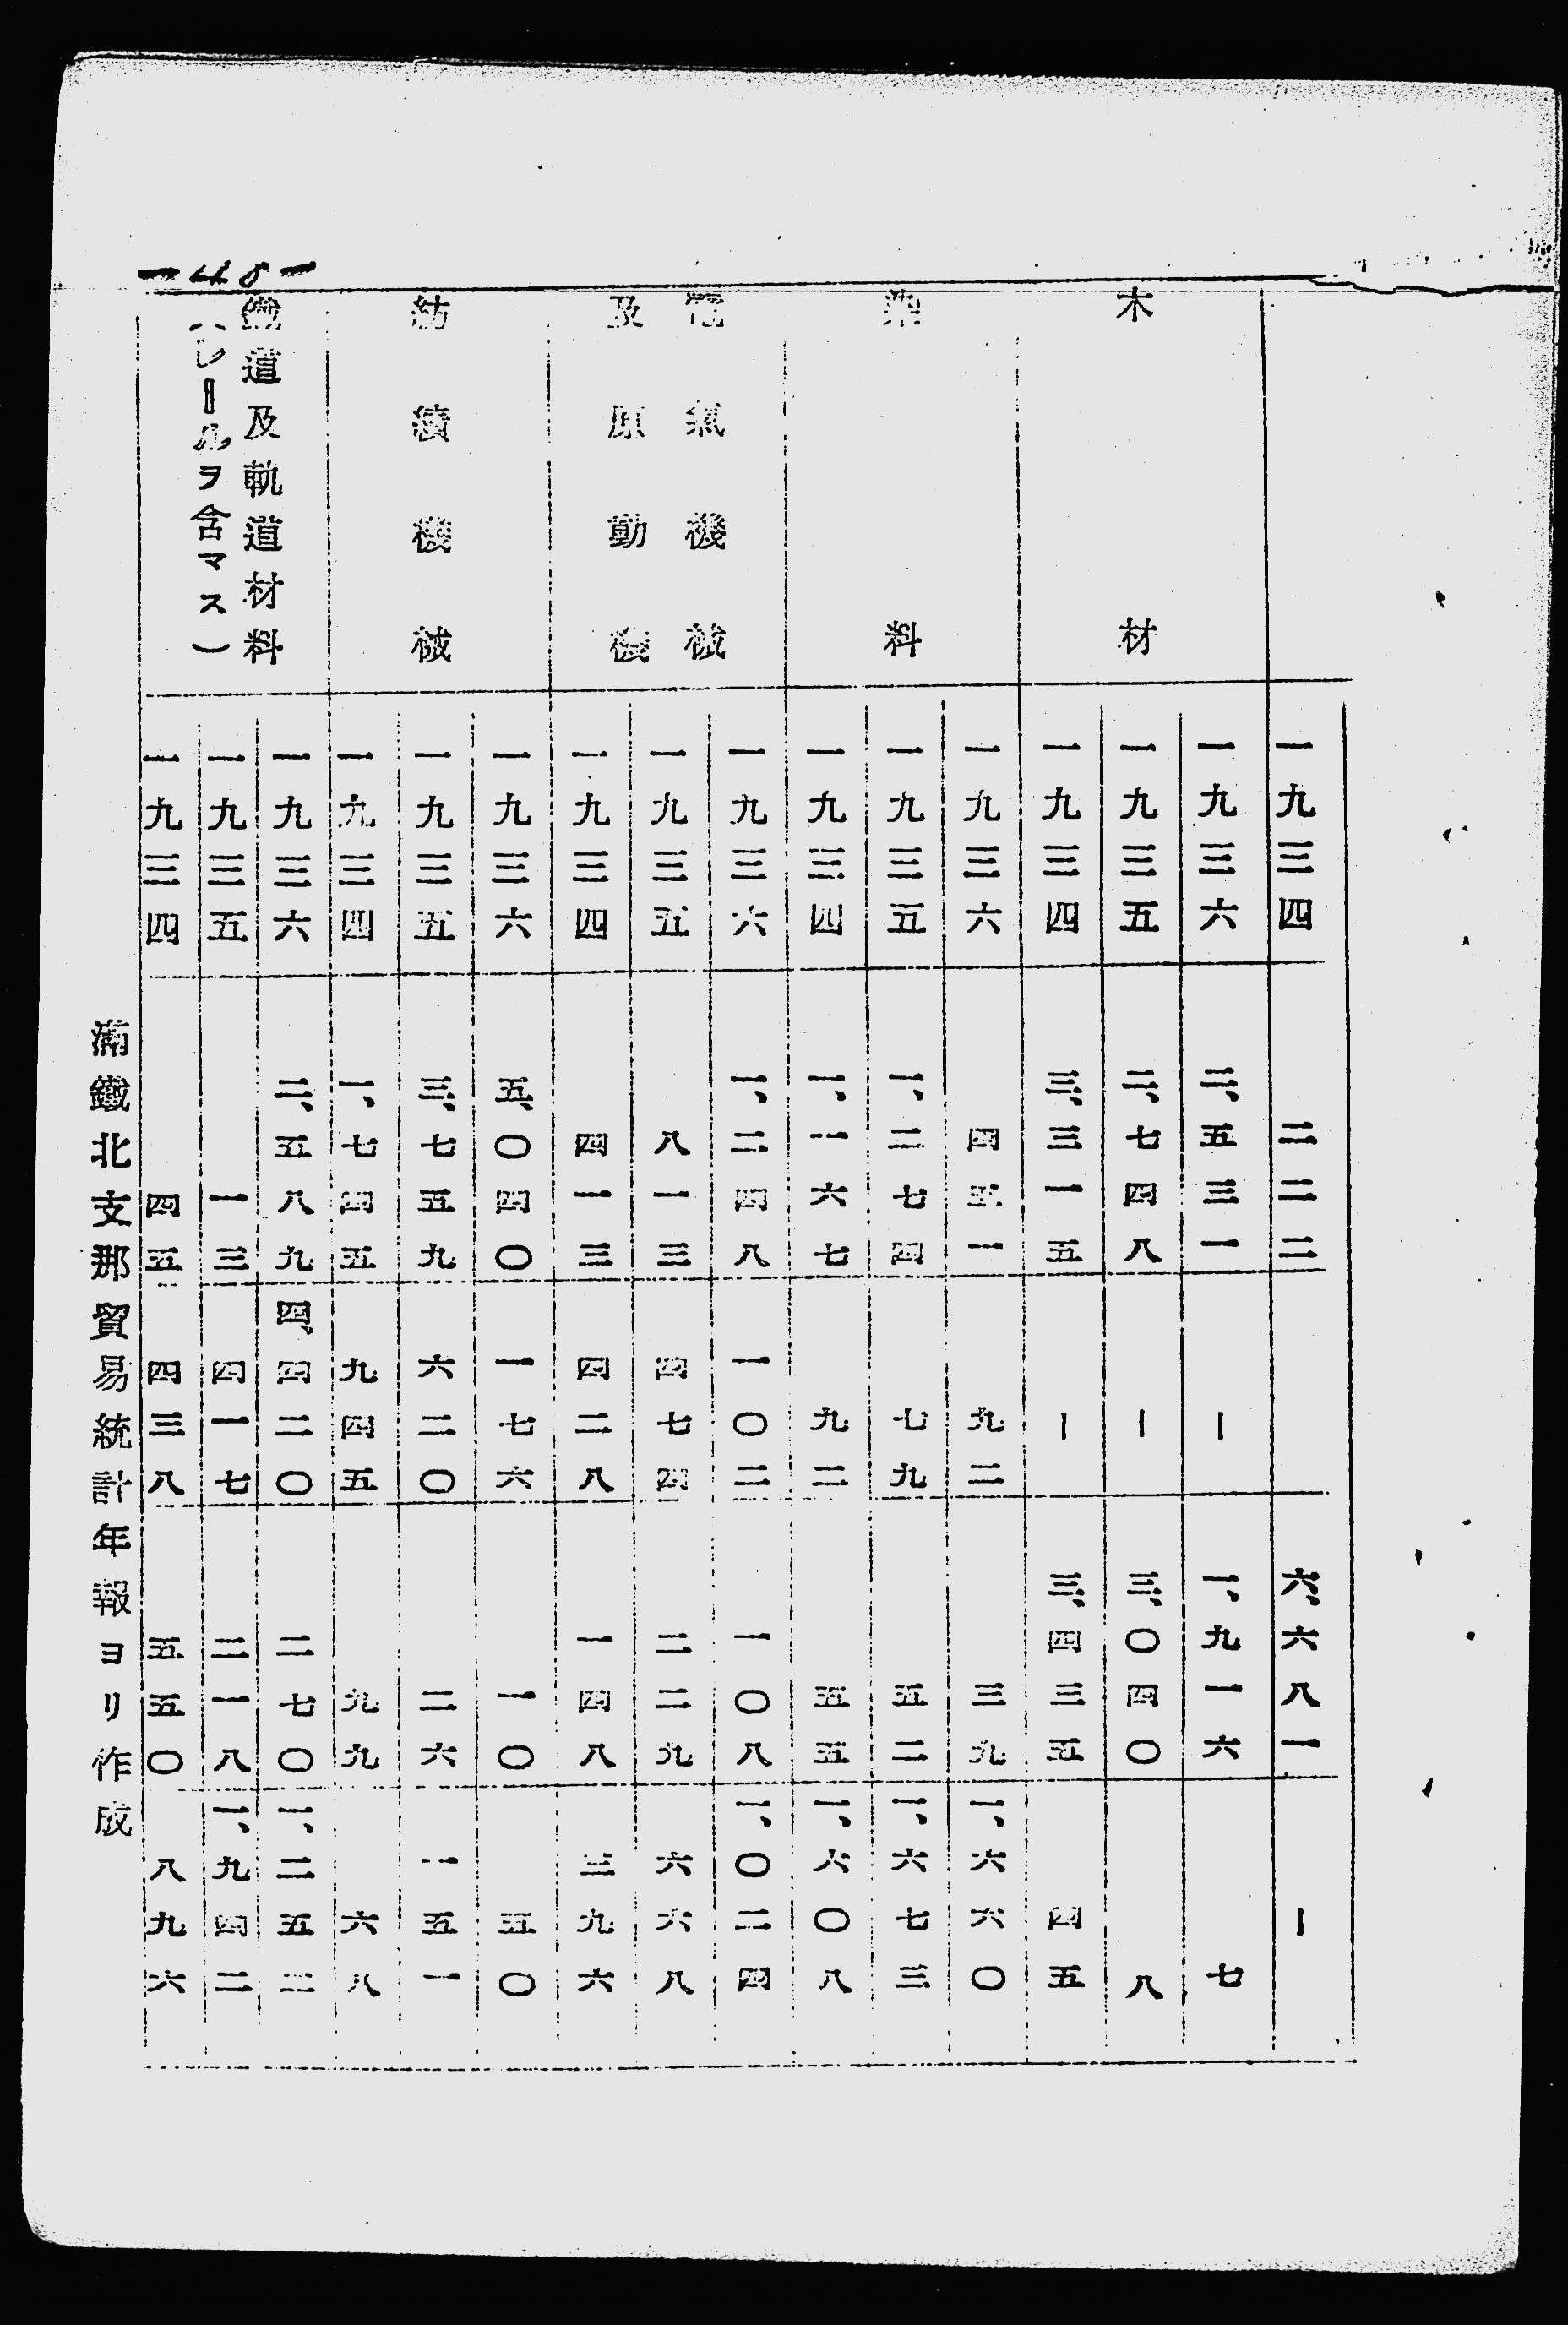 -48-
一九三四 二二二 六、六八一 ー
木材
一九三六 二、五三一 ー 一、九一六 七
一九三五 二、七四八 ー 三、〇四〇 八
一九三四 三、三一五 ー 三、四三五 四五
染料
一九三六 四五一 九二 三九 一、六六〇
一九三五 一、二七四 七九 五二 一、六七三
一九三四 一、一六七 九二 五五 一、六〇八
電氣機械
及原動機
一九三六 一、二四八 一〇二 一〇八 一、〇二四
一九三五 八一三 四七四 二二九 六六八
一九三四 四一三 四二八 一四八 三九六
紡績機械
一九三六 五、〇四〇 一七六 一〇 五〇
一九三五 三、七五九 六二〇 二六 一五一
一九三四 一、七四五 九四五 九九 六八
鐵道及軌道材料
(レールヲ含マス)
一九三六 二、五八九 四、四二〇 二七〇 一、二五二
一九三五 一三 四一七 二一八 一、九四二
一九三四 四五 四三八 五五〇 八九六
滿鐵北支那貿易統計年報ヨリ作成